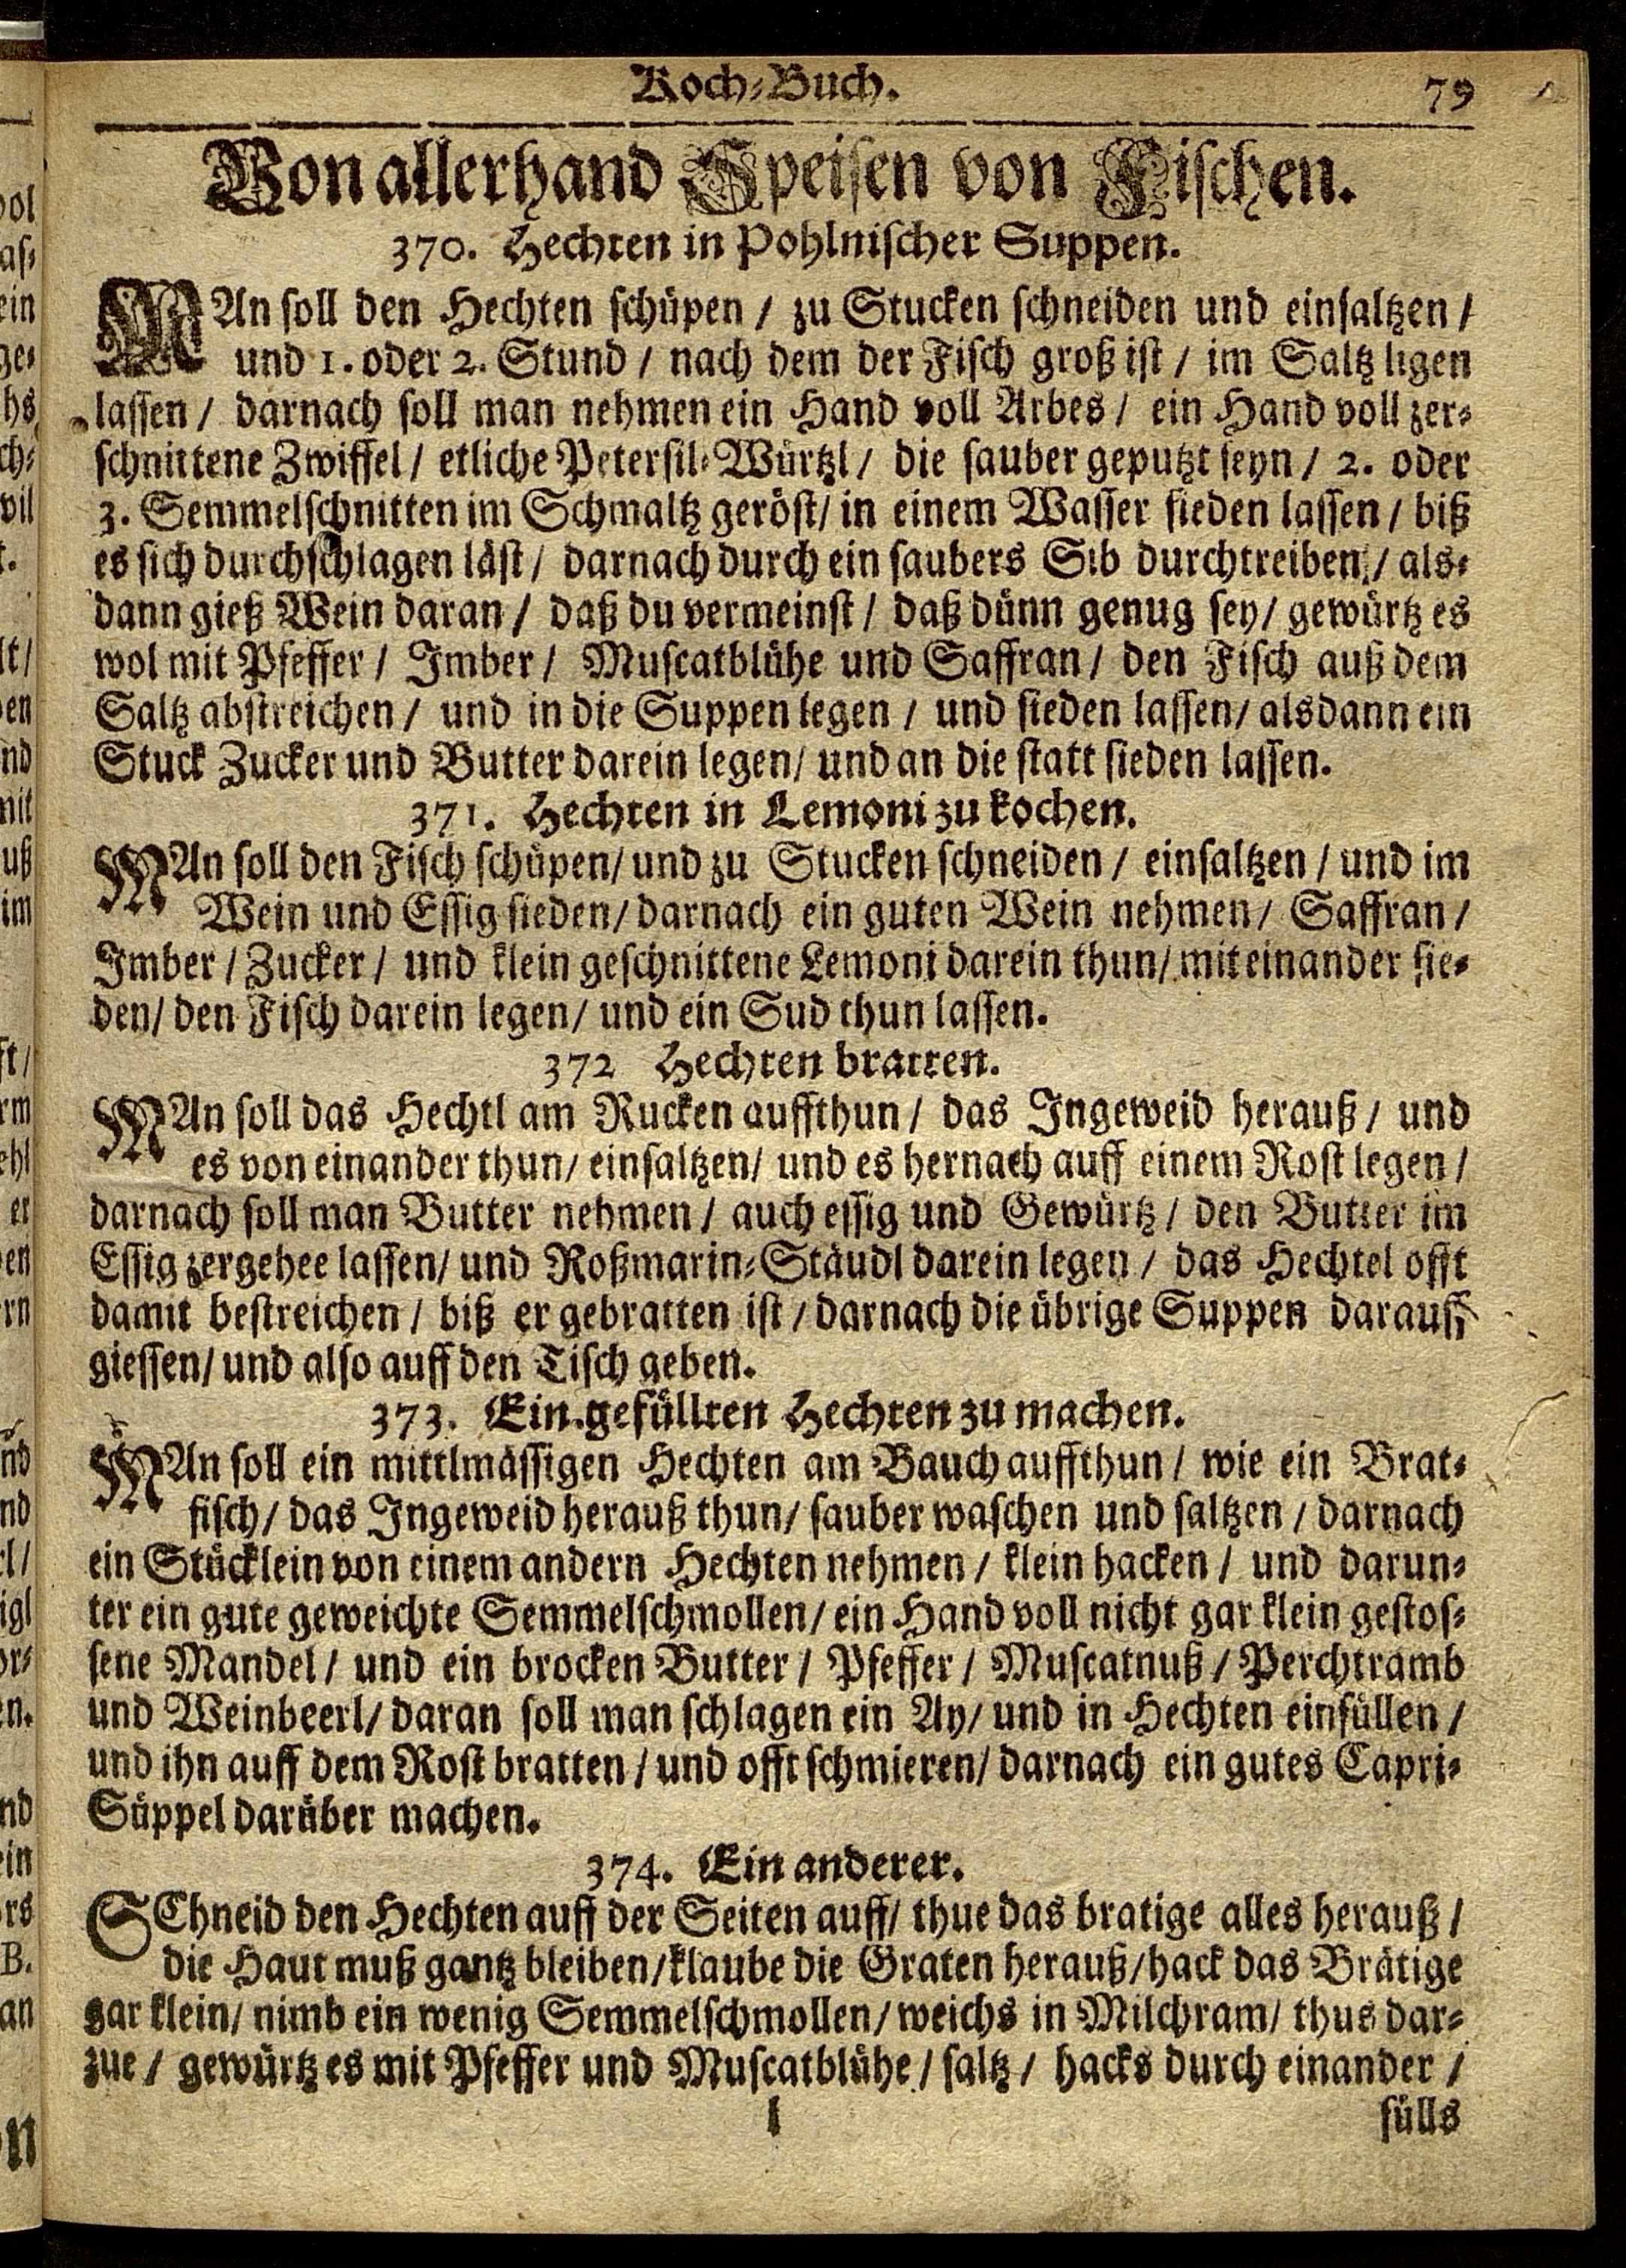 Koch-Buch. 79
Von allerhand Speisen von Fischen.
370. Hechten in Pohlnischer Suppen.
MAn soll den Hechten schüpen / zu Stucken schneiden und einsaltzen /
und 1. oder 2. Stund / nach dem der Fisch groß ist / im Saltz ligen
lassen / darnach soll man nehmen ein Hand voll Arbes / ein Hand voll zer-
schnittene Zwiffel / etliche Petersil-Würtzl / die sauber geputzt seyn / 2. oder
3. Semmelschnitten im Schmaltz geröst / in einem Wasser sieden lassen / biß
es sich durchschlagen läst / darnach durch ein saubers Sib durchtreiben / als-
dann gieß Wein daran / daß du vermeinst / daß dünn genug sey / gewürtz es
wol mit Pfeffer / Imber / Muscatblühe und Saffran / den Fisch auß dem
Saltz abstreichen / und in die Suppen legen / und sieden lassen / alsdann ein
Stuck Zucker und Butter darein legen / und an die statt sieden lassen.
371. Hechten in Lemoni zu kochen.
MAn soll den Fisch schüpen / und zu Stucken schneiden / einsaltzen / und im
Wein und Essig sieden / darnach ein guten Wein nehmen / Saffran /
Imber / Zucker / und klein geschnittene Lemoni darein thun / mit einander sie-
den / den Fisch darein legen / und ein Sud thun lassen.
372 Hechten bratten.
MAn soll das Hechtl am Rucken auffthun / das Ingeweid herauß / und
es von einander thun / einsaltzen / und es hernach auff einem Rost legen /
darnach soll man Butter nehmen / auch essig und Gewürtz / den Butter im
Essig zergehee lassen / und Roßmarin-Stäudl darein legen / das Hechtel offt
damit bestreichen / biß er gebratten ist / darnach die übrige Suppen darauff
giessen / und also auff den Tisch geben.
373. Ein gefüllten Hechten zu machen.
MAn soll ein mittlmässigen Hechten am Bauch auffthun / wie ein Brat-
fisch / das Ingeweid herauß thun / sauber waschen und saltzen / darnach
ein Stücklein von einem andern Hechten nehmen / klein hacken / und darun-
ter ein gute geweichte Semmelschmollen / ein Hand voll nicht gar klein gestos-
sene Mandel / und ein brocken Butter / Pfeffer / Muscatnuß / Perchtramb
und Weinbeerl / daran soll man schlagen ein Ay / und in Hechten einfüllen /
und ihn auff dem Rost bratten / und offt schmieren / darnach ein gutes Capri-
Süppel darüber machen.
374. Ein anderer.
SChneid den Hechten auff der Seiten auff / thue das bratige alles herauß /
die Haut muß gantz bleiben / klaube die Graten herauß / hack das Brätige
gar klein / nimb ein wenig Semmelschmollen / weichs in Milchram / thus dar-
zue / gewürtz es mit Pfeffer und Muscatblühe / saltz / hacks durch einander /
l fülls